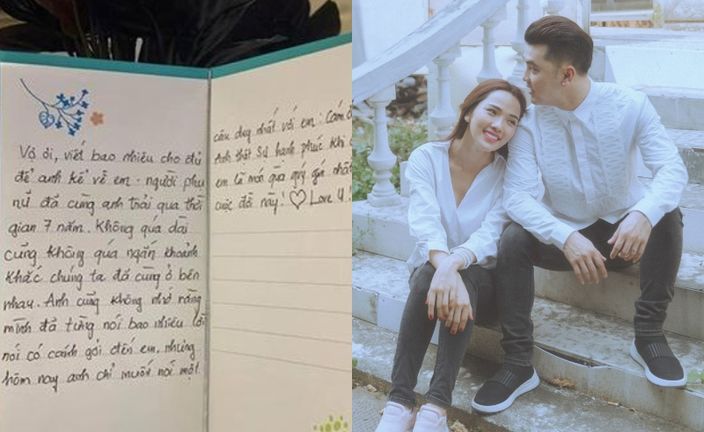 Vợ ơi, viết bao nhiêu cho đủ
để anh kể về em. người phụ
nữ đã cùng anh trải qua thời
gian 7 năm. Không quá dài
cũng không quá ngắn khoảnh
khắc chúng ta đã cùng ở bên
nhau. Anh cũng không nhớ rằng
mình đã từng nói bao nhiêu lời
nói có cánh gởi đến em, nhưng
hôm nay anh chỉ muốn nói một
câu duy nhất với em. Cám ơ
Anh thật sự hạnh phúc khi c
em là món quà quý giá nhất
cuộc đời này! ♡ Love U!